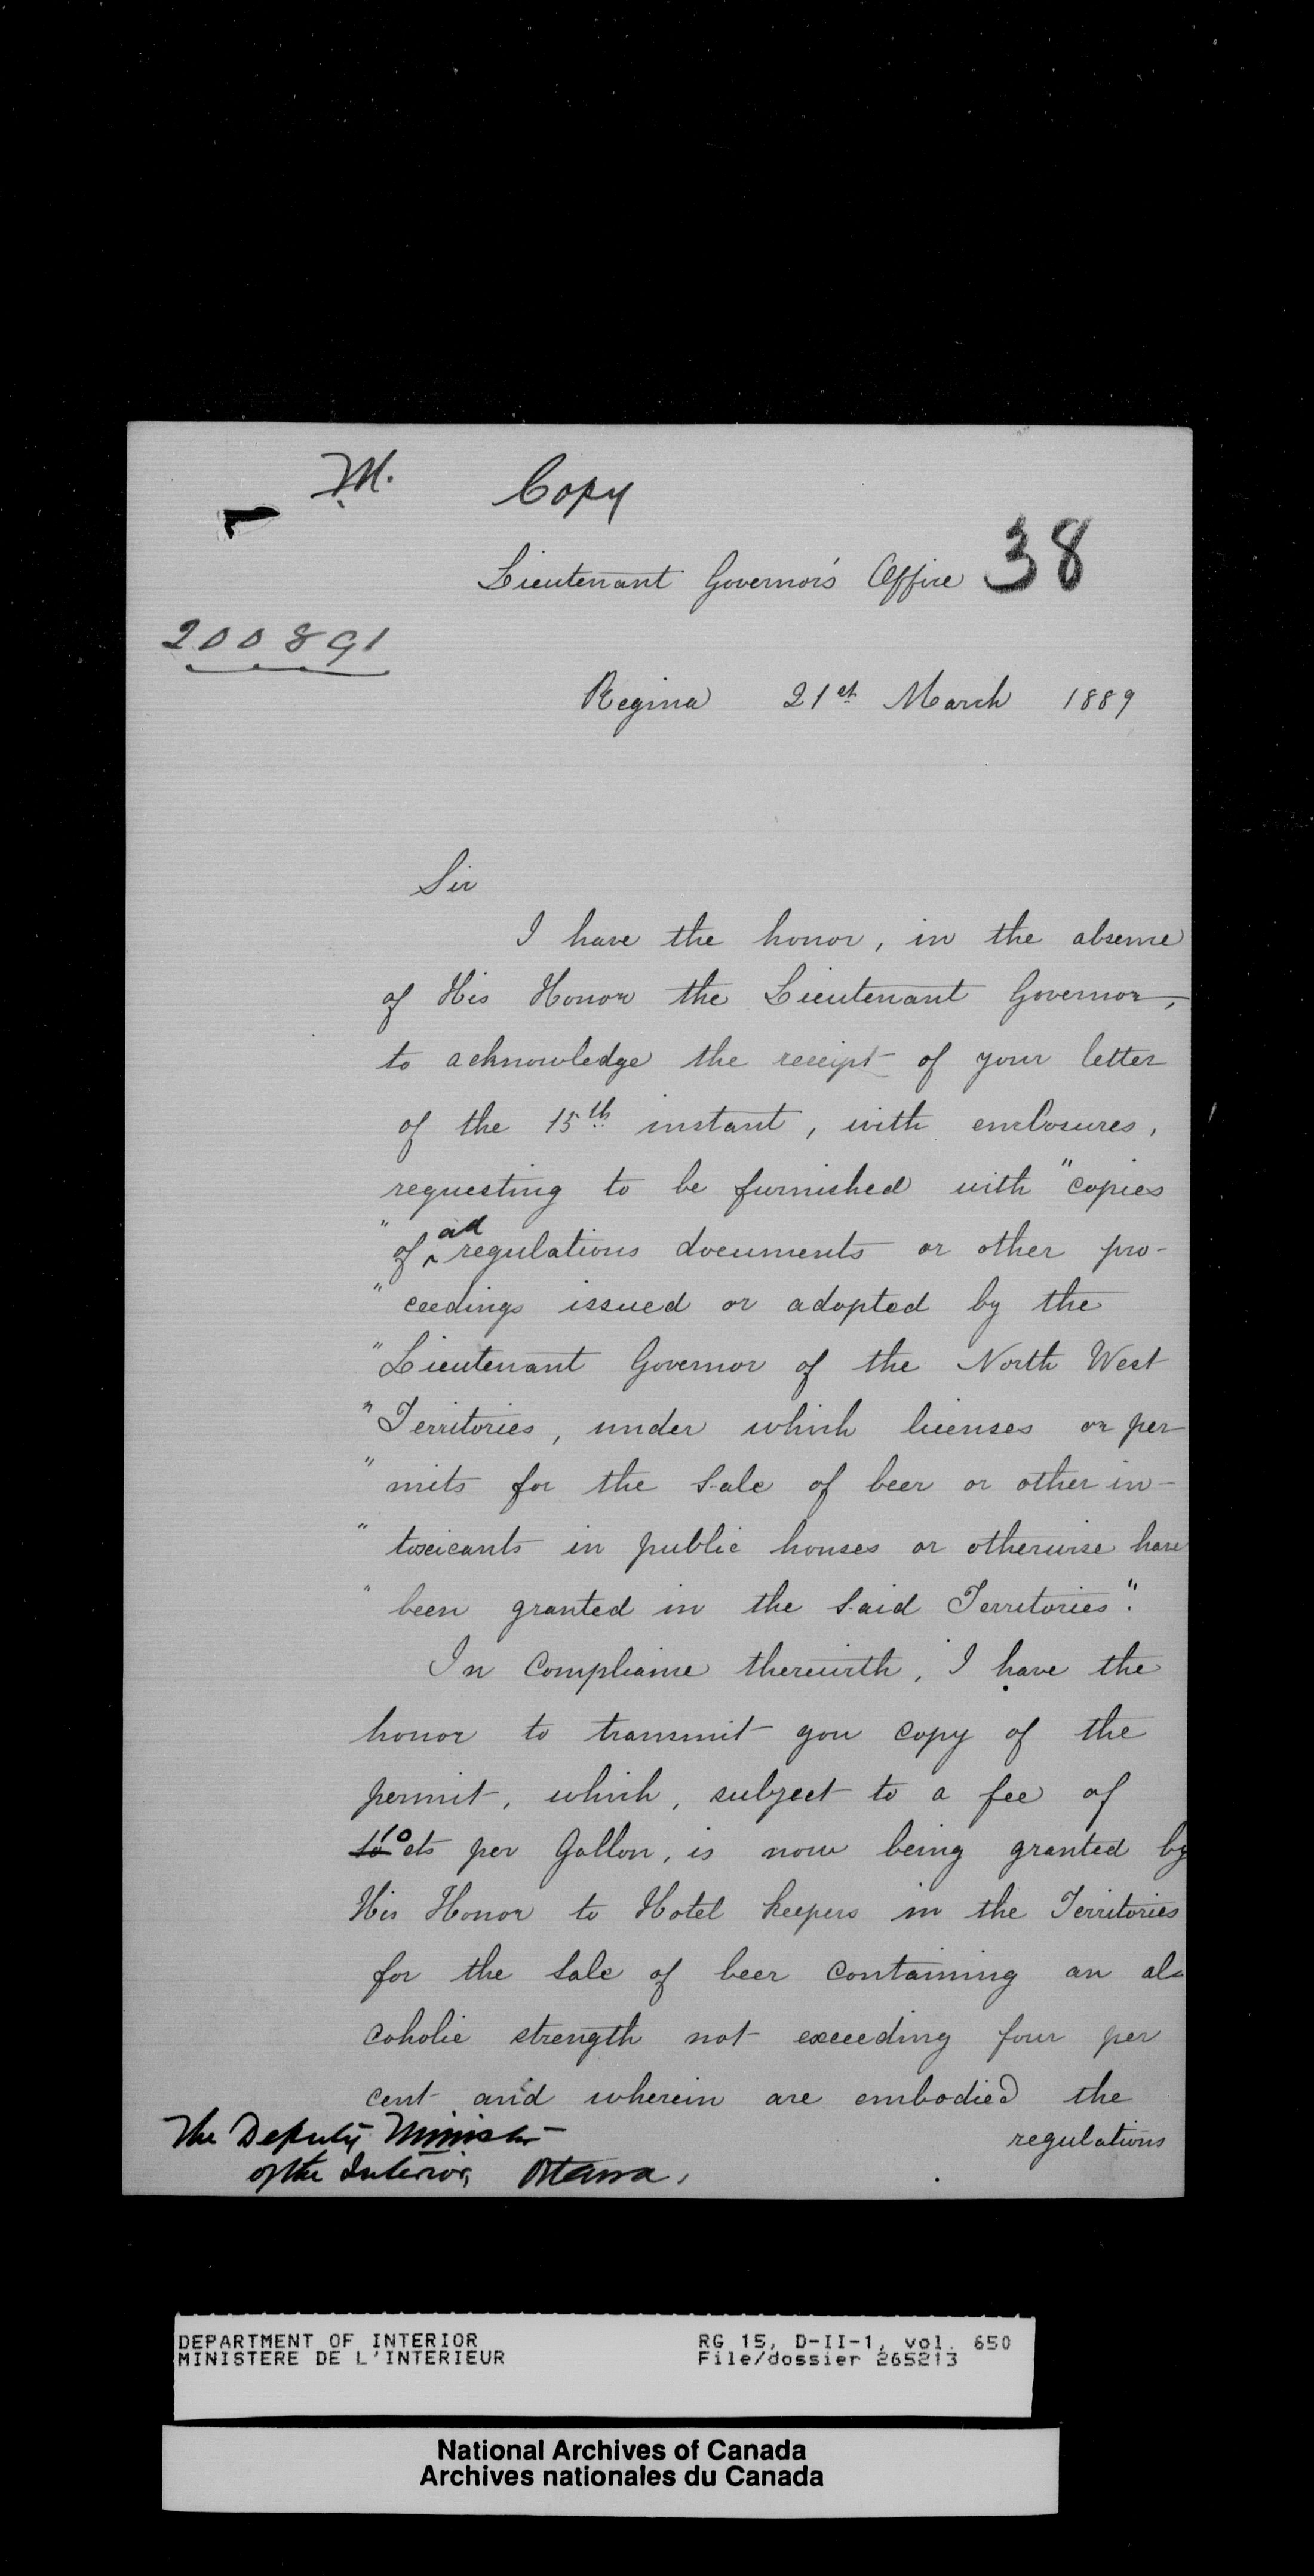 M. Copy
Lieutenant Governor's Office 38
200891
Regina 21st March 1889
Sir
I have the honor, in the absence
of His Honor the Lieutenant Governor,
to acknowledge the receipt of your letter
of the 15th instant, with enclosures,
requesting to be furnished with "copies
" of all regulations documents or other pro-
" ceedings issued or adopted by the
" Lieutenant Governor of the North West
" Territories, under which licenses or per
" mits for the sale of beer or other in-
" toxicants in public houses or otherwise have
" been granted in the said Territories".
In compliance therewith, I have the
honor to transmit you copy of the
permit, which, subject to a fee of
10 cts per Gallon, is now being granted by
His Honor to Hotel keepers in the Territories
for the sale of beer containing an al-
coholic strength not exceeding four per
cent and wherein are embodied the
regulations
The Deputy Minister
of the Interior, Ottawa.
DEPARTMENT OF INTERIOR RG 15, D-II-1, vol. 650
MINISTERE DE L'INTERIEUR File/dossier 265213
National Archives of Canada
Archives nationales du Canada